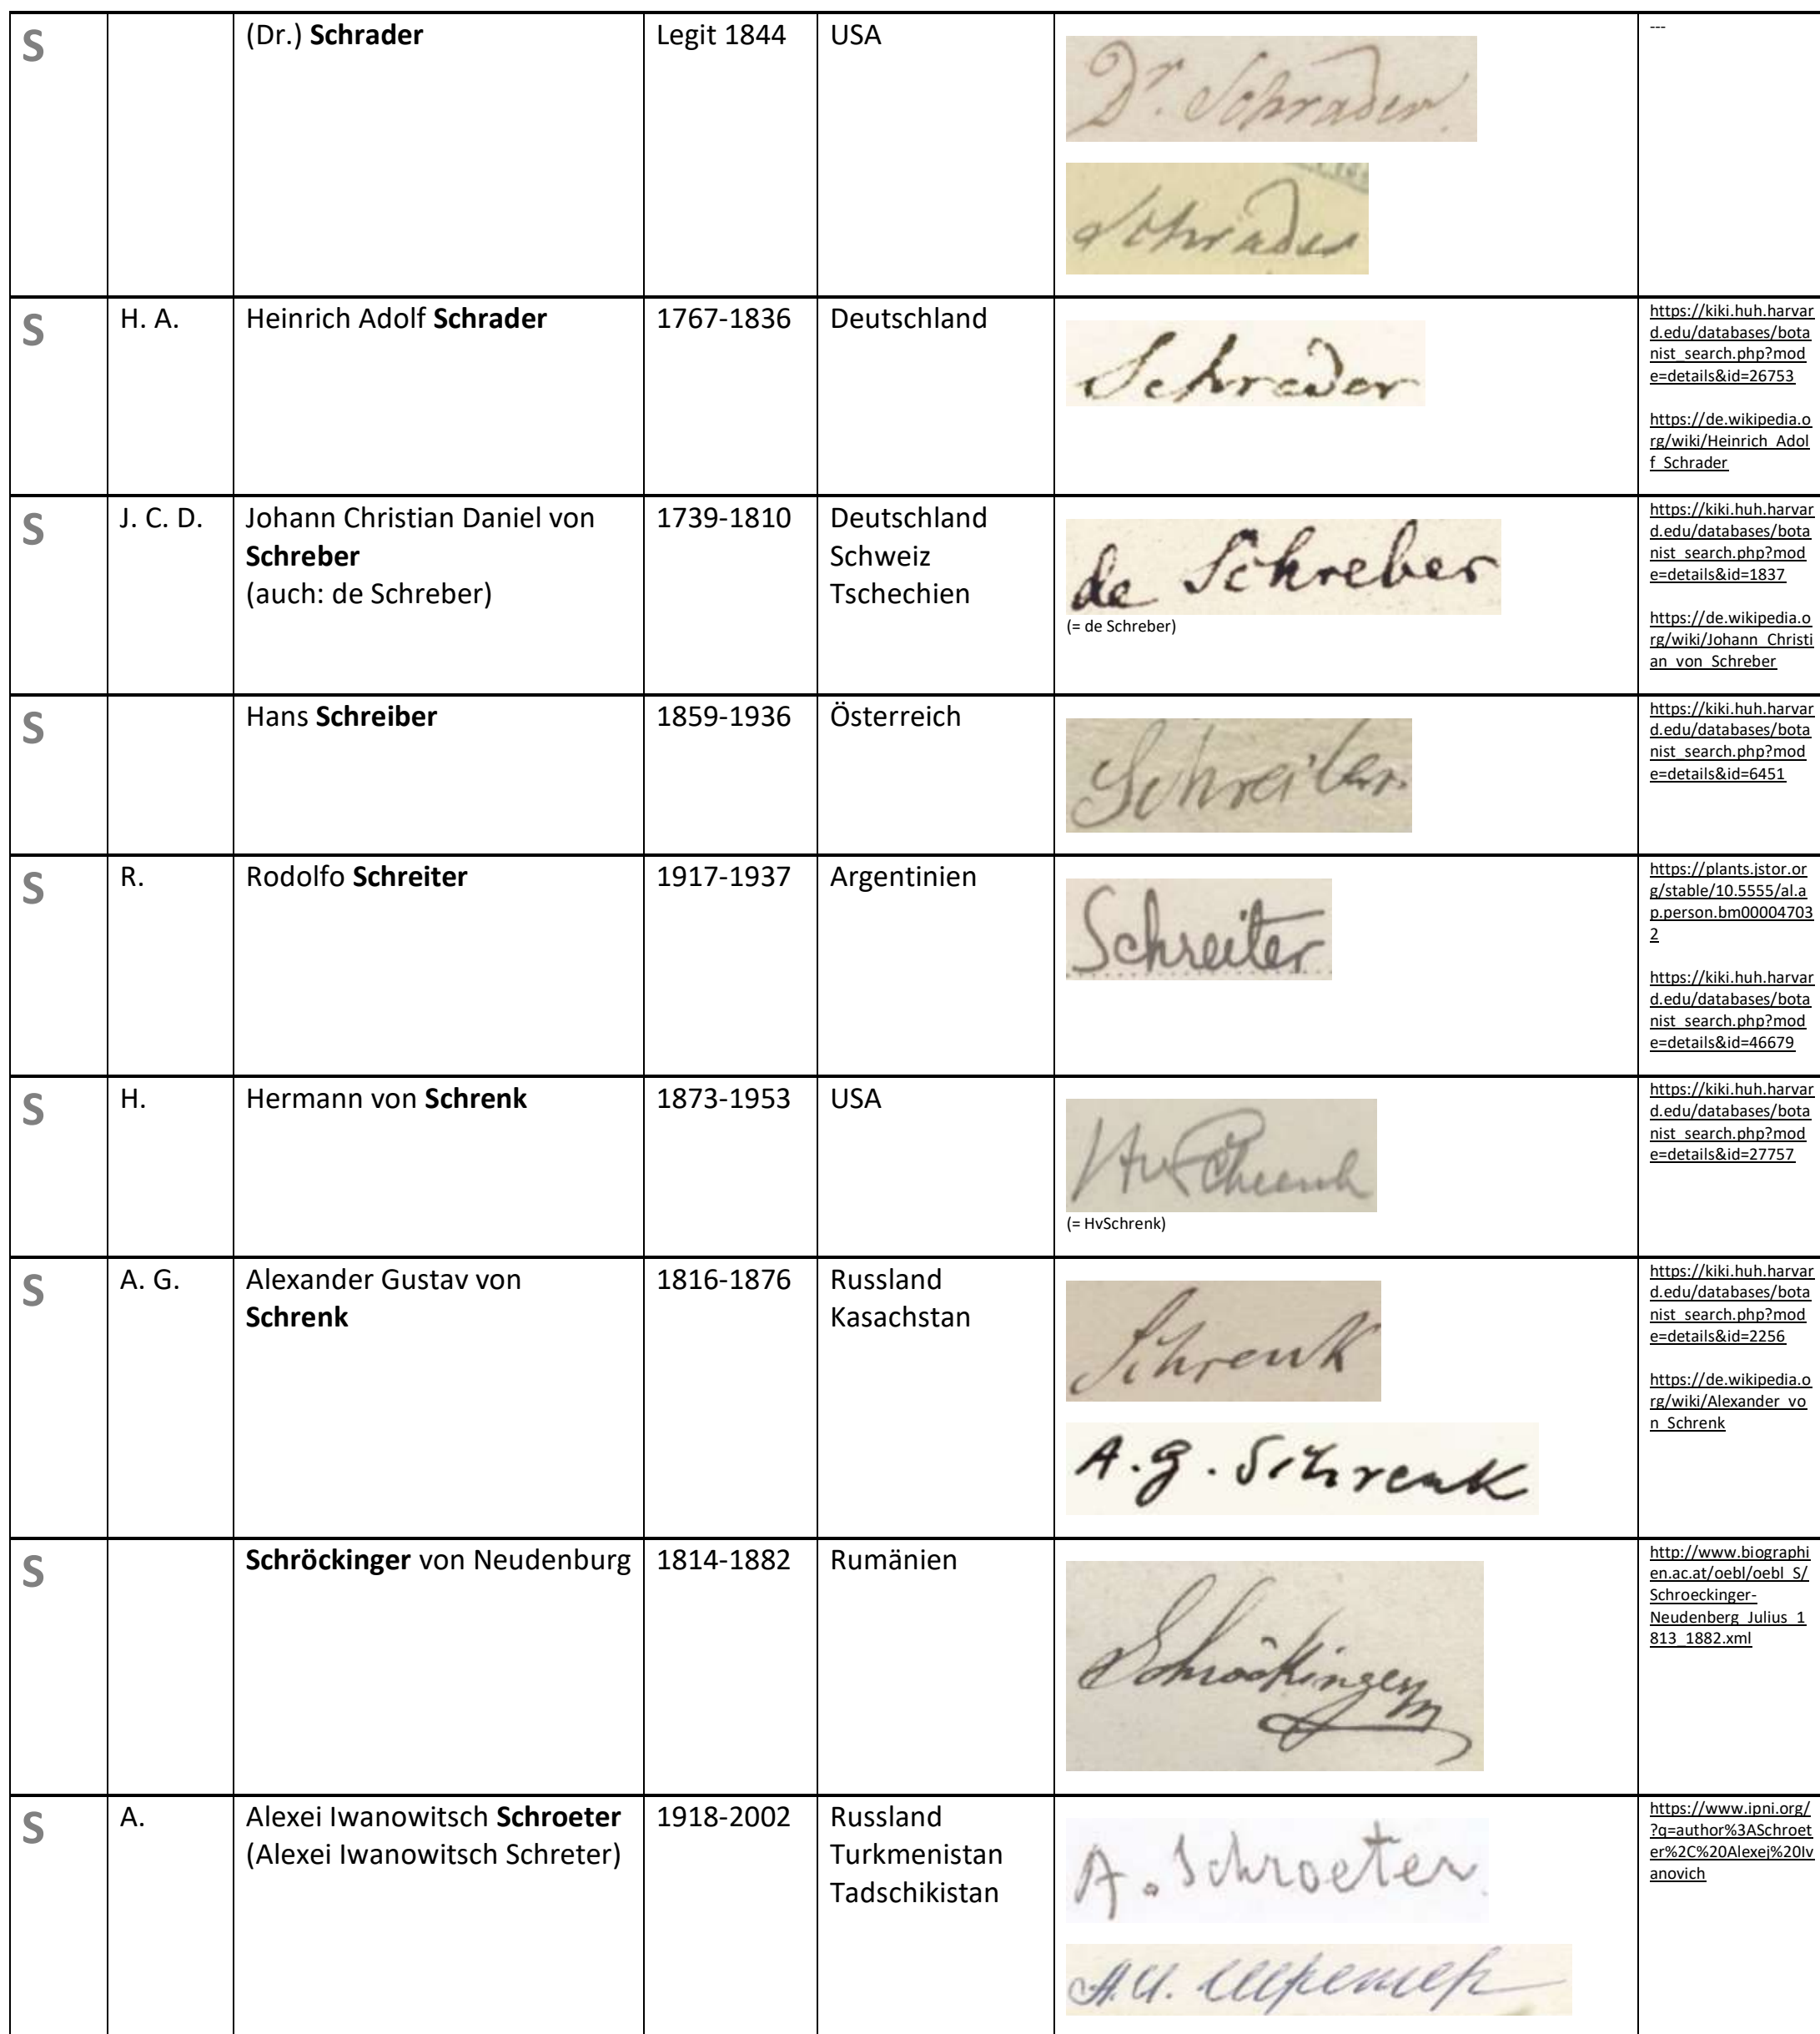 S
(Dr.) Schrader
Legit 1844
USA
Dr. Schrader.
Schrader
---
S
H. A.
Heinrich Adolf Schrader
1767-1836
Deutschland
Schrader
https://kiki.huh.harvar
d.edu/databases/bota
nist_search.php?mod
e=details&id=26753
https://de.wikipedia.o
rg/wiki/Heinrich_Adol
f_Schrader
S
J. C. D.
Johann Christian Daniel von
Schreber
(auch: de Schreber)
1739-1810
Deutschland
Schweiz
Tschechien
de Schreber
(= de Schreber)
https://kiki.huh.harvar
d.edu/databases/bota
nist_search.php?mod
e=details&id=1837
https://de.wikipedia.o
rg/wiki/Johann_Christi
an_von_Schreber
S
Hans Schreiber
1859-1936
Österreich
Schreiber
https://kiki.huh.harvar
d.edu/databases/bota
nist_search.php?mod
e=details&id=6451
S
R.
Rodolfo Schreiter
1917-1937
Argentinien
Schreiter
https://plants.jstor.or
g/stable/10.5555/al.a
p.person.bm00004703
2
https://kiki.huh.harvar
d.edu/databases/bota
nist_search.php?mod
e=details&id=46679
S
H.
Hermann von Schrenk
1873-1953
USA
HvSchrenk
(= HvSchrenk)
https://kiki.huh.harvar
d.edu/databases/bota
nist_search.php?mod
e=details&id=27757
S
A. G.
Alexander Gustav von
Schrenk
1816-1876
Russland
Kasachstan
Schrenk
A. G. Schrenk
https://kiki.huh.harvar
d.edu/databases/bota
nist_search.php?mod
e=details&id=2256
https://de.wikipedia.o
rg/wiki/Alexander_vo
n_Schrenk
S
Schröckinger von Neudenburg
1814-1882
Rumänien
Schröckinger
http://www.biographi
en.ac.at/oebl/oebl_S/
Schroeckinger-
Neudenberg_Julius_1
813_1882.xml
S
A.
Alexei Iwanowitsch Schroeter
(Alexei Iwanowitsch Schreter)
1918-2002
Russland
Turkmenistan
Tadschikistan
A. Schroeter
А. И. Шретер
https://www.ipni.org/
?q=author%3ASchroet
er%2C%20Alexej%20Iv
anovich